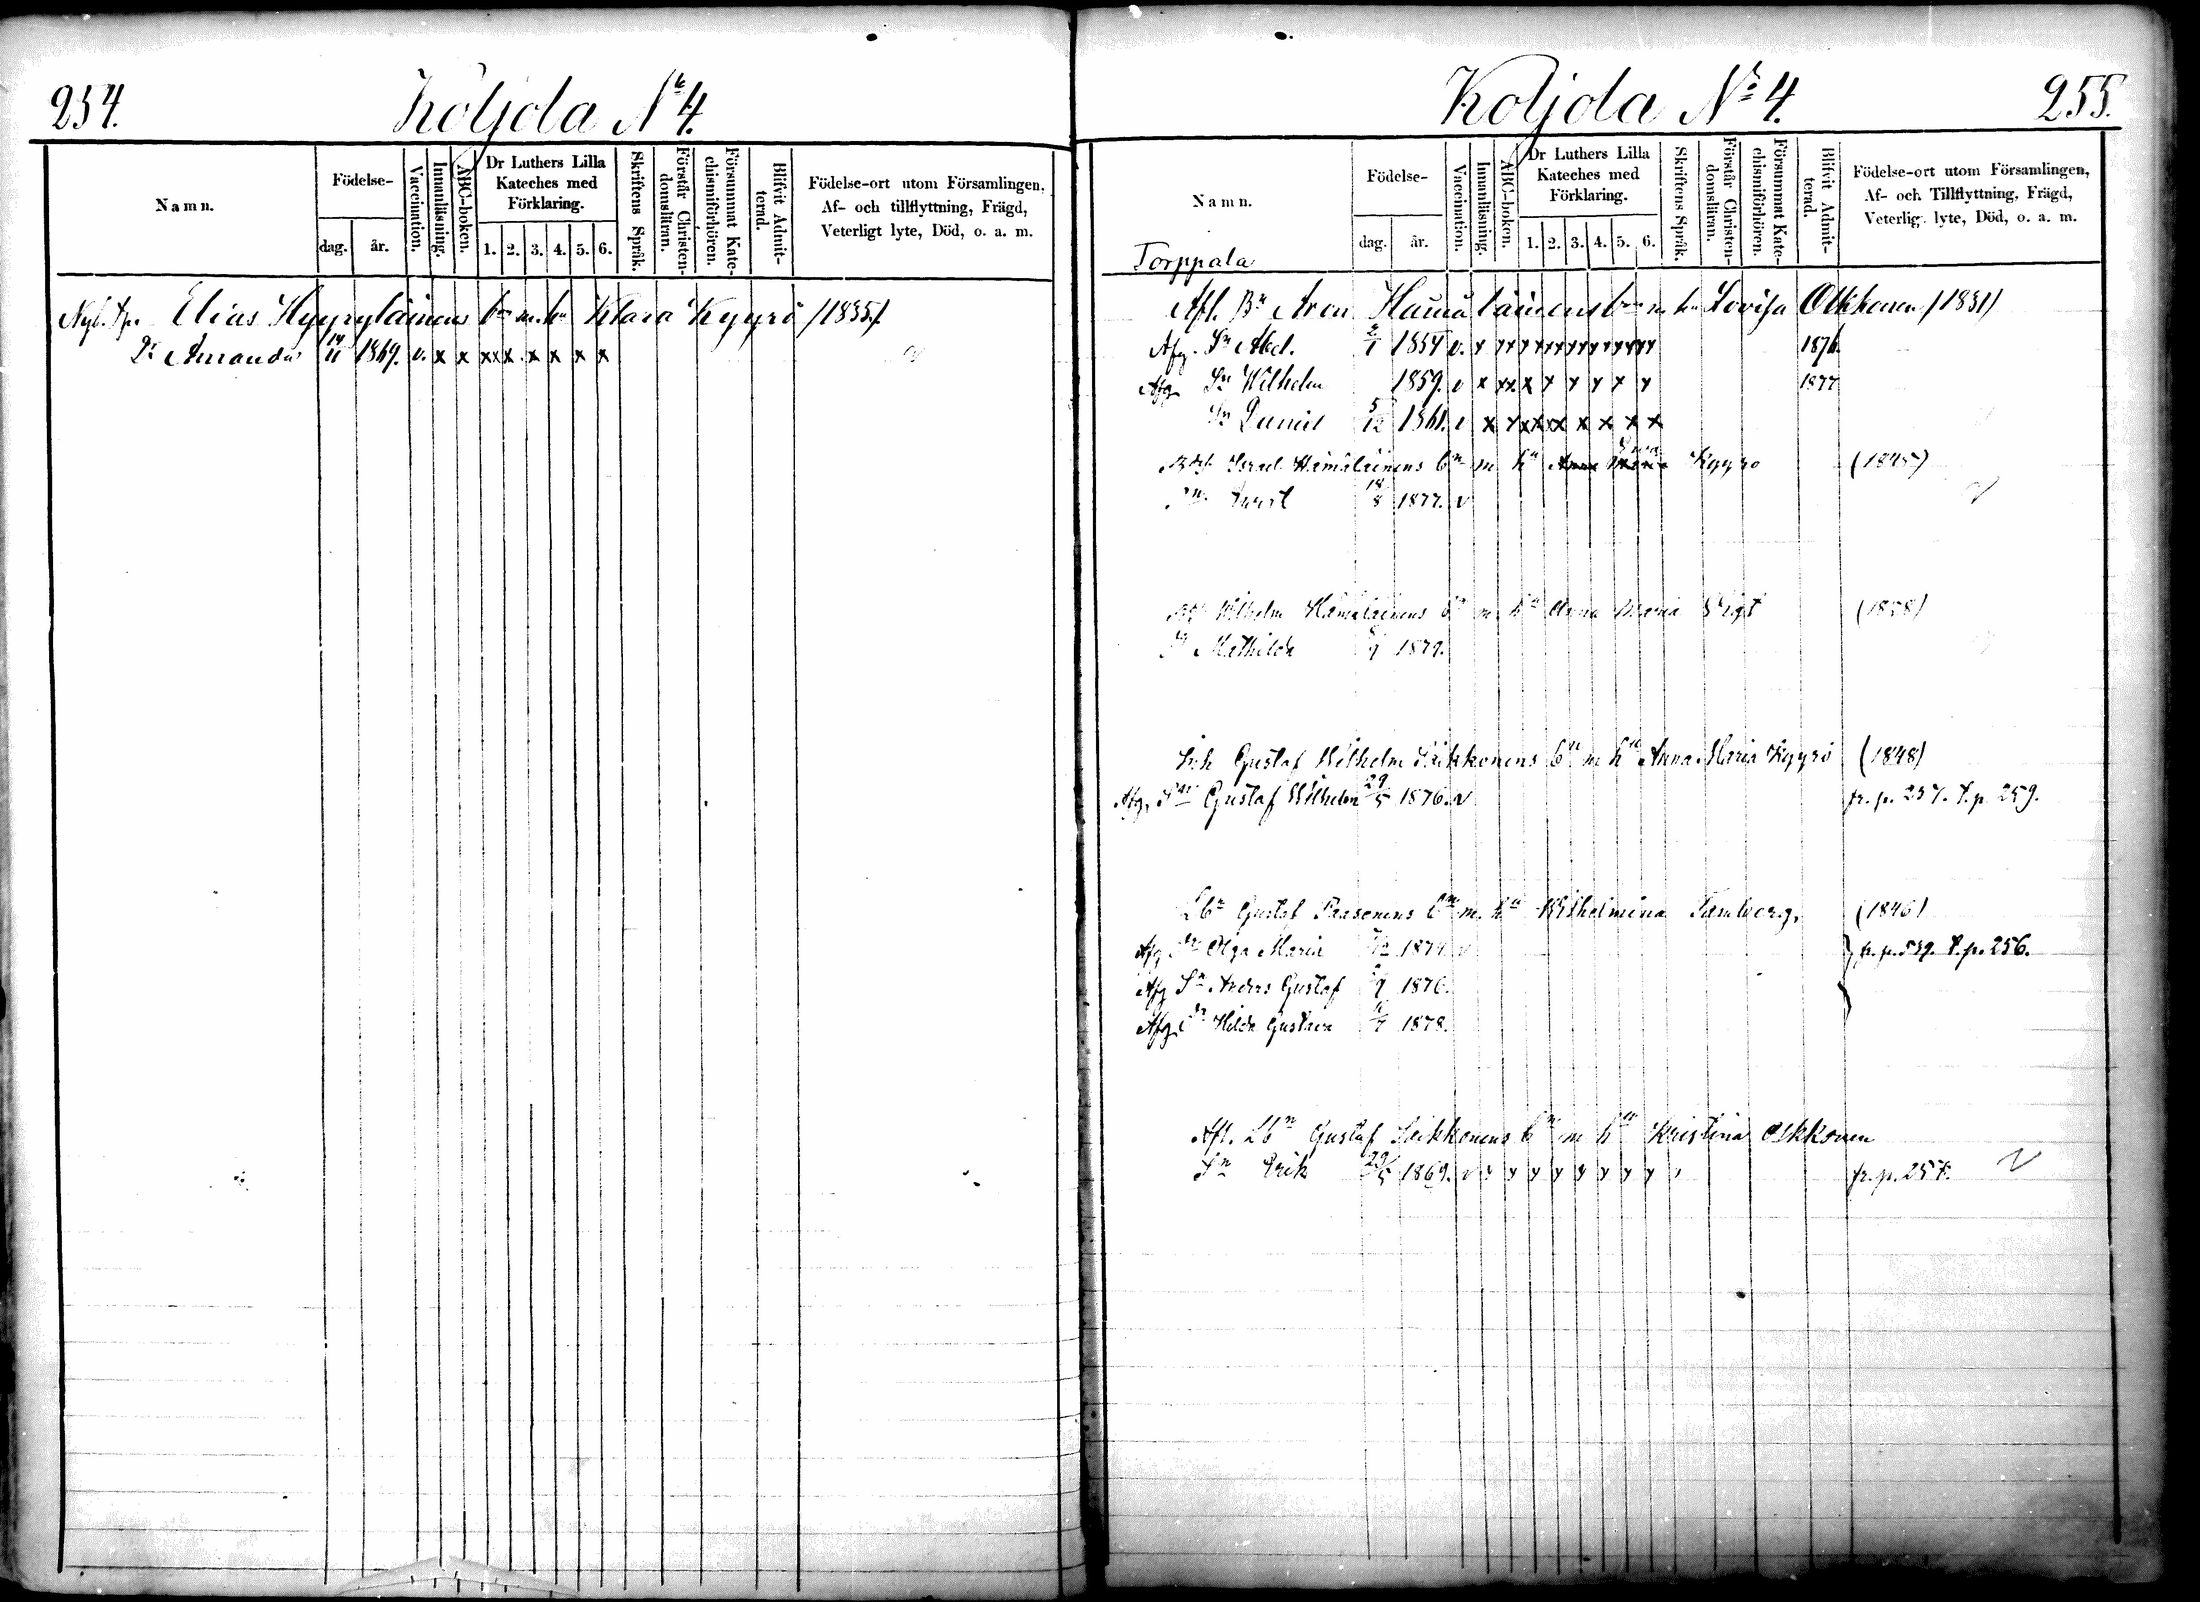 254. Koljola No 4.
Namn. Födelse- dag. år. Vaccination. Innanläsning. ABC-boken. Dr Luthers Lilla Kateches med Förklaring. 1. 2. 3. 4. 5. 6. Skriftens Språk. Förstår Christendomsläran. Försummat Katechismiförhören. Blifvit Admitterad. Födelse-ort utom Församlingen, Af- och tillflyttning, Frägd, Veterligt lyte, Död, o. a. m.
Elias Hyyryläinens bn m. hu Klara Kyyrö /1835/.
Dr Amanda 14/11 1869. v. x x xx x x x x x
Koljola No 4. 255.
Namn. Födelse- dag. år. Vaccination. Innanläsning. ABC-boken. Dr Luthers Lilla Kateches med Förklaring. 1. 2. 3. 4. 5. 6. Skriftens Språk. Förstår Christendomsläran. Försummat Katechismiförhören. Blifvit Admitterad. Födelse-ort utom Församlingen, Af- och Tillflyttning, Frägd, Veterligt lyte, Död, o. a. m.
Torppala
Afl. Bn Aron Hämäläinens bn m hu Lovisa Olkkonen /1831/
Afg. Sn Abel. 1854 v. 1876.
Afg Sn Wilhelm 1859. v x xx x x x x x x 1877
Sn Daniel 5/12 1861. v x x xx xx x x x x
Israel Hämäläinens bn m hu Kyyrö (1845)
Sn 18/8 1877. v
Wilhelm Hämäläinens bn m hu Anna Maria (1858)
Dr Mathilda 1879.
Inh Gustaf Wilhelm Leikkonens bn m hu Anna Maria Kyyrö (1848)
Afg. Sn Gustaf Wilhelm 29/5 1876. v fr. p. 257. t. p. 259.
Lbn Gustaf Paasonens bn m. hu Wilhelmina Tamberg, (1846)
Afg Dr Olga Maria 1874. v fr. p. 539. t. p. 256.
Afg Sn Anders Gustaf 1876.
Afg. Dr Hilda Gustava 1878.
Afl. Lbn Gustaf Leikkonens bn m hu Kristina Olkkonen
Sn Erik 1869. v fr. p. 257.